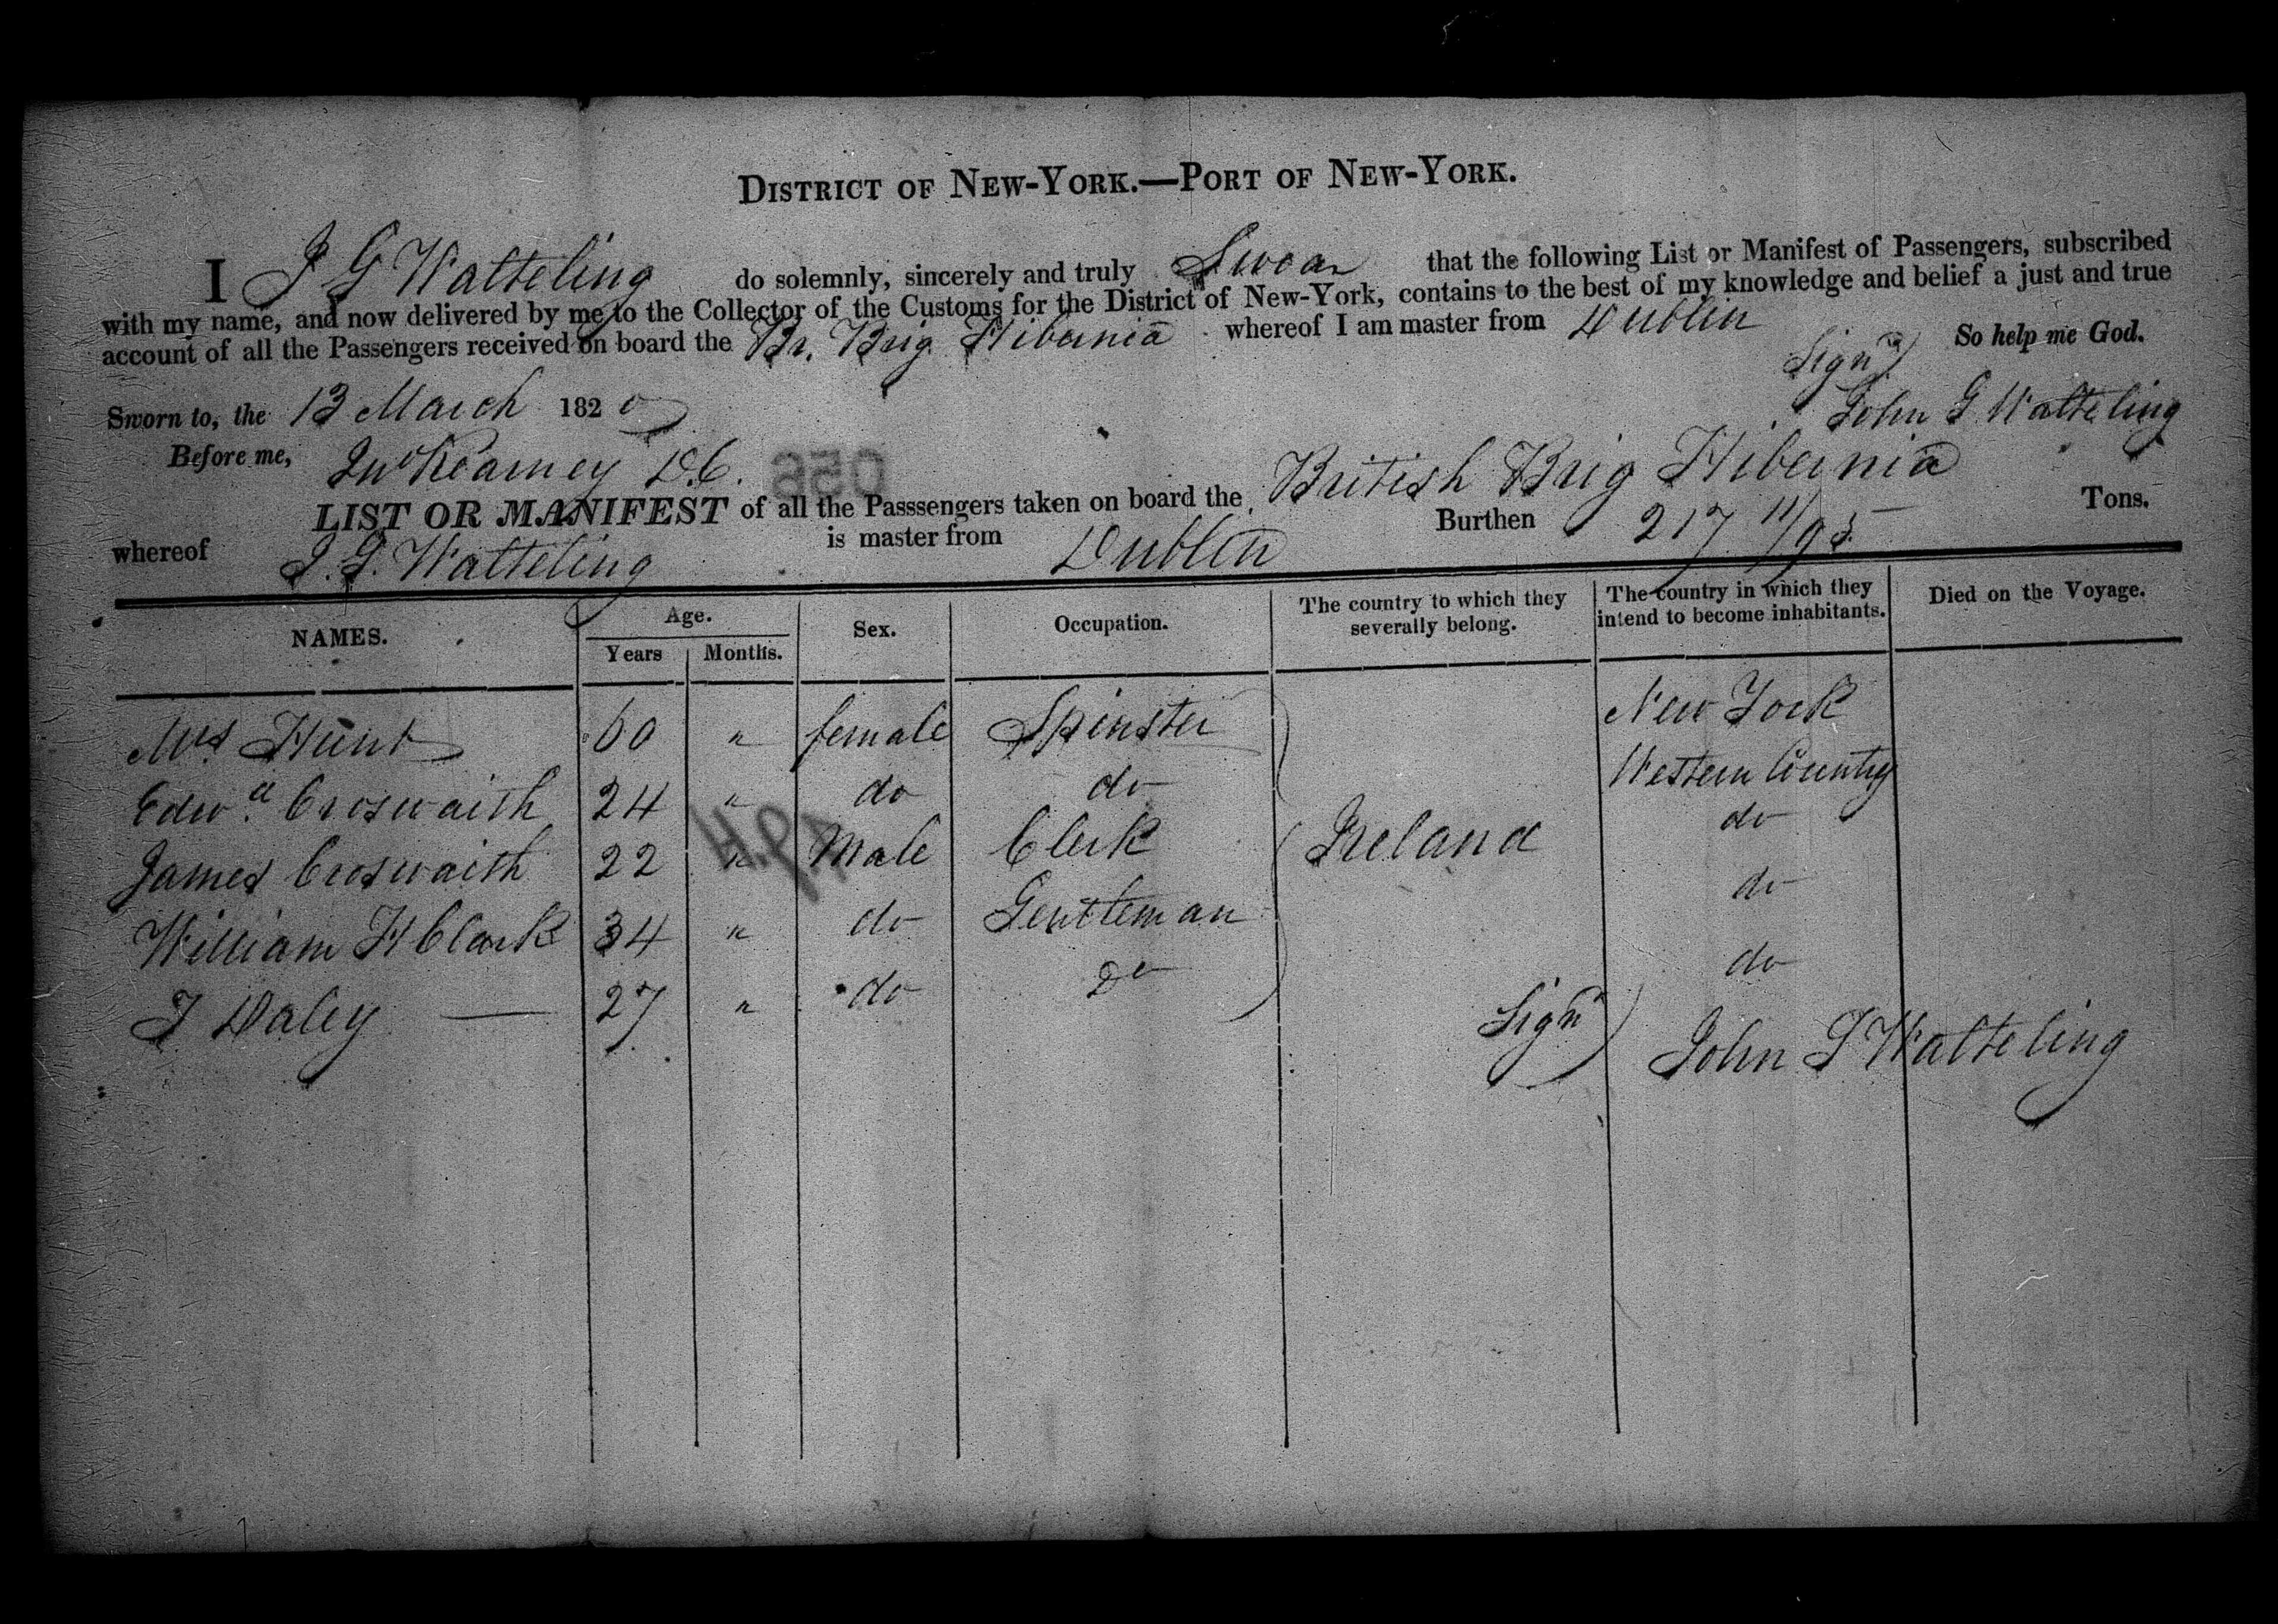 DISTRICT OF NEW-YORK.—PORT OF NEW-YORK.
I J G Watteling do solemnly, sincerely and truly Swear that the following List or Manifest of Passengers, subscribed
with my name, and now delivered by me to the Collector of the Customs for the District of New-York, contains to the best of my knowledge and belief a just and true
account of all the Passengers received on board the Br. Brig Hibernia whereof I am master from Dublin So help me God.
Sign'd
Sworn to, the 13 March 1820 John G Watteling
Before me, Jno Kearney D.C.
LIST OR MANIFEST of all the Passsengers taken on board the British Brig Hibernia
whereof J. G. Watteling is master from Dublin Burthen 217 11/95 Tons.
NAMES. Age. Years Months. Sex. Occupation. The country to which they severally belong. The country in which they intend to become inhabitants. Died on the Voyage.
Mrs Hunt 60 " female Spinster New York
Edwd. Croswaith 24 " do do Western Country
James Croswaith 22 " Male Clerk Ireland do
William H Clark 34 " do Gentleman do
J Daley — 27 " do Do do
Sign'd John G Watteling